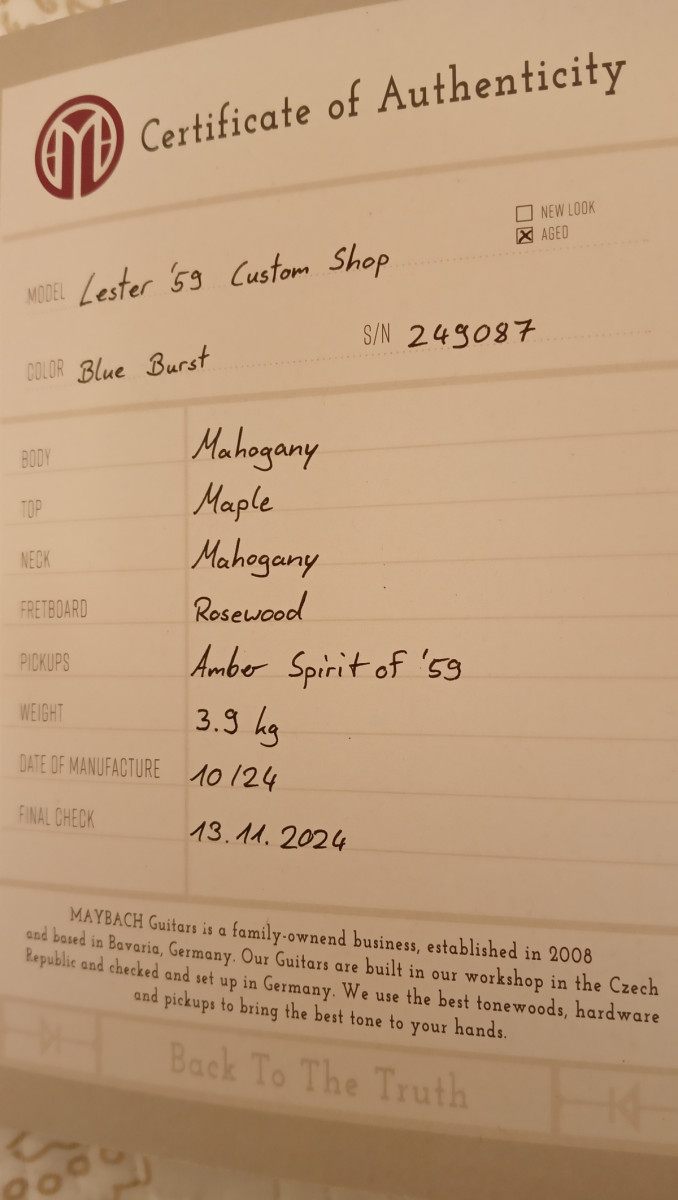 Certificate of Authenticity
NEW LOOK
AGED
MODEL Lester '59 Custom Shop
COLOR Blue Burst S/N 249087
BODY Mahogany
TOP Maple
NECK Mahogany
FRETBOARD Rosewood
PICKUPS Amber Spirit of '59
WEIGHT 3.9 kg
DATE OF MANUFACTURE 10/24
FINAL CHECK 13.11.2024
MAYBACH Guitars is a family-ownend business, established in 2008
and based in Bavaria, Germany. Our Guitars are built in our workshop in the Czech
Republic and checked and set up in Germany. We use the best tonewoods, hardware
and pickups to bring the best tone to your hands.
Back To The Truth